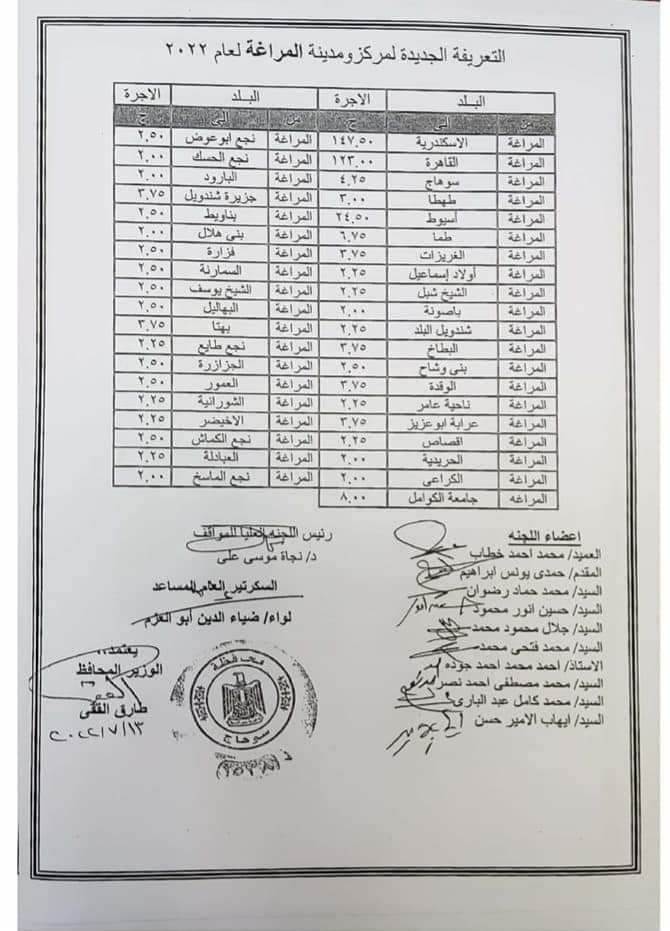 التعريفة الجديدة لمركز ومدينة المراغة لعام ٢٠٢٢
البــلد الاجرة البــلد الاجرة
من إلى ج من إلى ج
المراغة الاسكندرية ١٤٧.٥٠ المراغة نجع ابوعوض ٢.٥٠
المراغة القاهرة ١٢٣.٠٠ المراغة نجع الحسك ٢.٠٠
المراغة سوهاج ٤.٢٥ المراغة البارود ٢.٠٠
المراغة طهطا ٣.٠٠ المراغة جزيرة شندويل ٣.٧٥
المراغة أسيوط ٢٤.٥٠ المراغة بناويط ٢.٥٠
المراغة طما ٦.٧٥ المراغة بنى هلال ٢.٠٠
المراغة الغريزات ٣.٧٥ المراغة فزارة ٢.٥٠
المراغة أولاد إسماعيل ٢.٢٥ المراغة السمارنة ٢.٥٠
المراغة الشيخ شبل ٢.٢٥ المراغة الشيخ يوسف ٢.٥٠
المراغة باصونة ٢.٠٠ المراغة البهاليل ٢.٥٠
المراغة شندويل البلد ٢.٢٥ المراغة بهتا ٣.٧٥
المراغة البطاخ ٣.٧٥ المراغة نجع طايع ٢.٢٥
المراغة بنى وشاح ٢.٥٠ المراغة الجزازرة ٢.٥٠
المراغة الوقدة ٣.٧٥ المراغة العمور ٢.٥٠
المراغة ناحية عامر ٢.٢٥ المراغة الشورانية ٢.٢٥
المراغة عرابة ابوعزيز ٣.٧٥ المراغة الاخيضر ٢.٢٥
المراغة اقصاص ٢.٢٥ المراغة نجع الكماش ٢.٥٠
المراغة الحريدية ٢.٠٠ المراغة العبادلة ٢.٢٥
المراغة الكراعى ٢.٠٠ المراغة نجع الماسخ ٢.٠٠
المراغه جامعة الكوامل ٨.٠٠
اعضاء اللجنه
العميد/ محمد احمد خطاب
المقدم/ حمدى يونس ابراهيم
السيد/ محمد حماد رضوان
السيد/ حسين انور محمود
السيد/ جلال محمود محمد
السيد/ محمد فتحى محمد
الاستاذ/ احمد محمد احمد جوده
السيد/ محمد مصطفى احمد نصر
السيد/ محمد كامل عبد البارى
السيد/ ايهاب الامير حسن
رئيس اللجنه العليا للمواقف
د/ نجاة موسى على
السكرتير العام المساعد
لواء/ ضياء الدين أبو العزم
يعتمد،،
الوزير المحافظ
طارق الفقى
٢٠٢٢/٧/١٣
محافظة
سوهاج